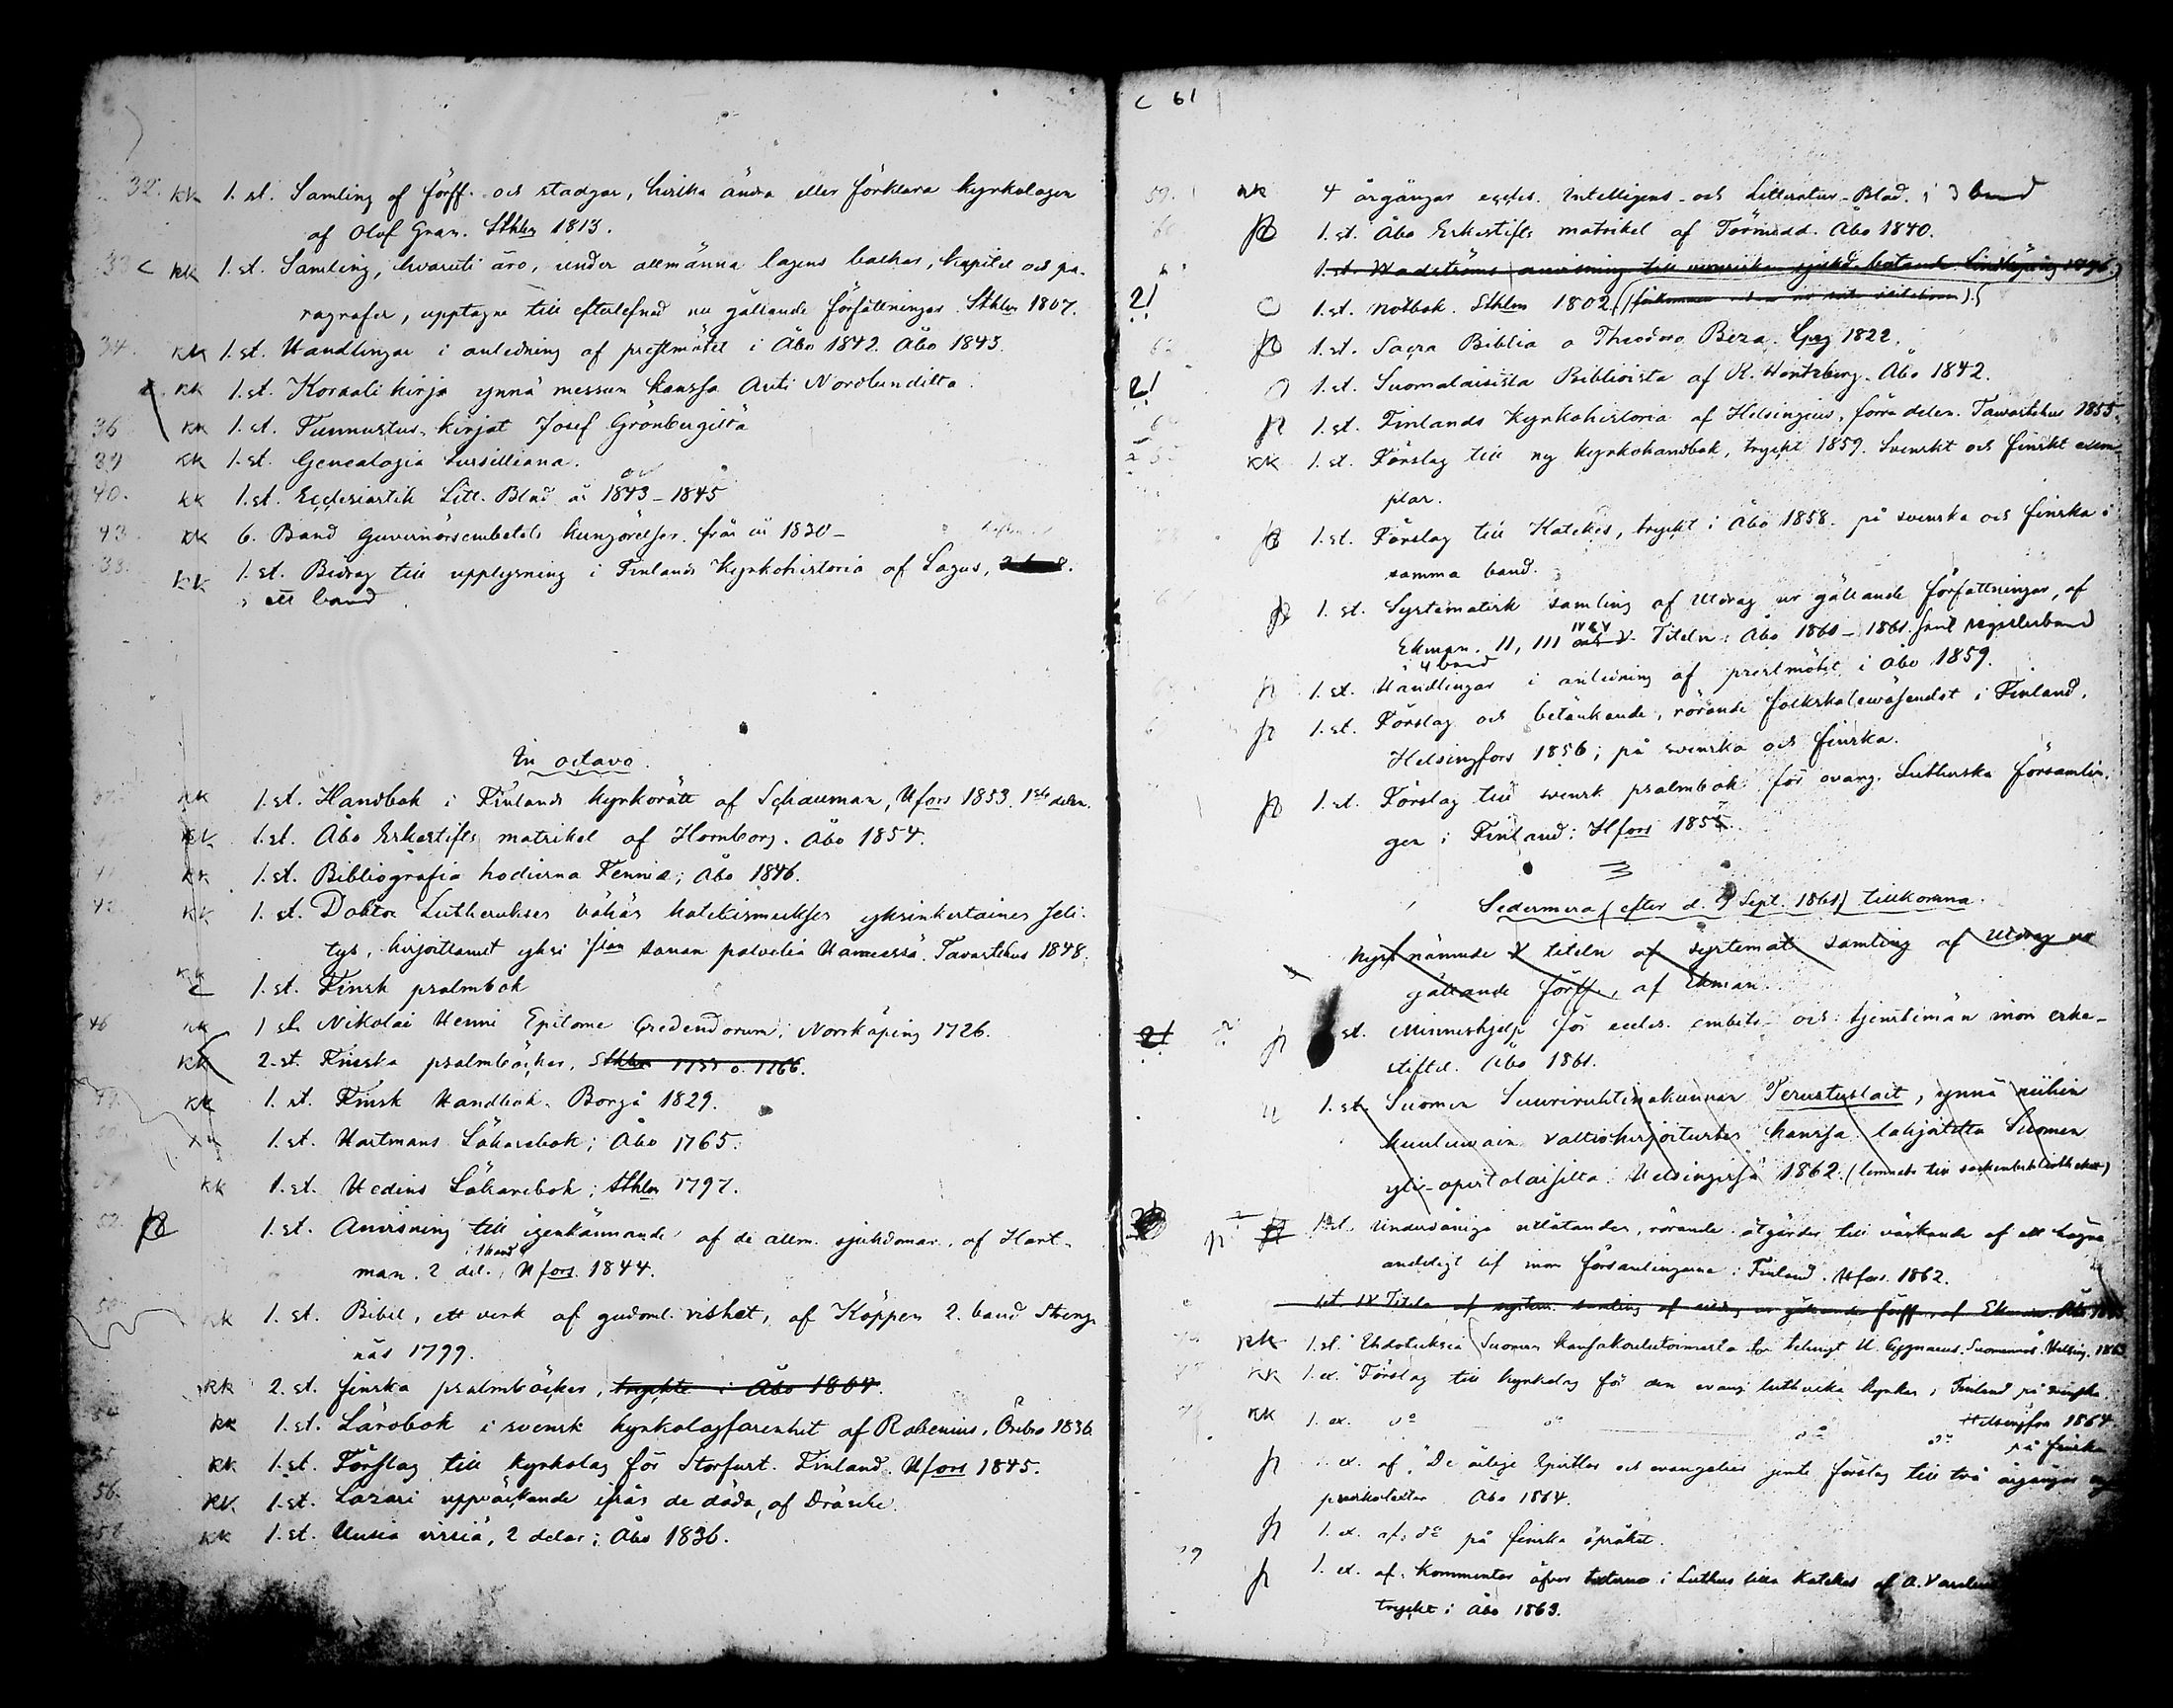 32. KK 1. st. Samling af förff. och stadgar, hvilka ändra eller förklara kyrkolagen
af Olof Gran. Sthlm 1813.
33 KK 1. st. Samling, hvaruti äro, under allmänna lagens balkar, kapitel och pa-
ragrafer, upptagne till efterlefnad nu gällande författningar. Sthlm 1807.
34. KK 1. st. Handlingar i anledning af prestmötet i Åbo 1842. Åbo 1843.
KK 1. st. Koraalikirja ynnä messun kanssa Anti Nordlundilta.
36 KK 1. st. Tunnustus-kirjat Josef Grönbergiltä
39 KK 1. st. Genealogia Sursilliana.
40. KK 1. st. Ecclesiastik Litt. Blad år 1843 - 1845
43. KK 6. Band Guvernörsembetets kungörelser från år 1830 -
33. KK 1. st. Bidrag till upplysning i Finlands Kyrkohistoria af Lagus,
i ett band.
In octavo.
KK 1. st. Handbok i Finlands kyrkorätt af Schauman, Hfors 1853. 1sta delen.
KK 1. st. Åbo Erkestifts matrikel af Hornborg. Åbo 1854.
KK 1. st. Bibliografia hodierna Fennia; Åbo 1846.
42. KK 1. st. Doktor Lutheruksen vähän katekismuksen yksinkertainen Seli-
tys, kirjoittanut yksi sanan palvelia Hämeessä. Tavastehus 1848.
KK 1. st. Finsk psalmbok
46 KK 1 st. Nikolai Henni Epitome Credendorum; Norrköping 1726.
KK 2. st. Finska psalmböcker. Sthlm 1755 o. 1766.
KK 1. st. Finsk Handbok. Borgå 1829.
KK 1. st. Hartmans Läkarebok; Åbo 1765.
KK 1. st. Hedins Läkarebok; Sthlm 1797.
52. 1. st. Anvisning till igenkännande af de allm. sjukdomar, af Hart-
i 1 band
man. 2 del., Hfors. 1844.
KK 1. st. Bibel, ett verk af gudoml. vishet, af Köppen 2. band Streng-
näs 1799.
KK 2. st. finska psalmböcker, tryckte i Åbo 1864.
KK 1. st. Lärobok i svensk kyrkolagfarenhet af Rabenius. Örebro 1836.
KK 1. st. Förslag till Kyrkolag för Storfurst. Finland. Hfors 1845.
56. KK 1. st. Lazari uppväckande ifrån de döda, af Dräseke.
KK 1. st. Uusia virsiä, 2 delar; Åbo 1836.
C 61
59. KK 4 årgångar eccles. Intelligens- och Litteratur-Blad. i 3 band
1. st. Åbo Erkestifts matrikel af Törnudd. Åbo 1840.
1. st. Wadströms anvisning till
2! 1. st. Notbok. Sthlm 1802
1. st. Sacra Biblia a Theodoro Beza. Lpzg 1822.
2! 1. st. Suomalaisista Biblioista af R. Hertzberg. Åbo 1842.
1. st. Finlands Kyrkohistoria af Helsingius, förra delen. Tawastehus 1855
KK 1. st. Förslag till ny kyrkohandbok, tryckt 1859. Svenskt och finskt exem-
plar.
1. st. Förslag till Katekes, tryckt i Åbo 1858. på svenska och finska i
samma band.
1. st. Systematisk samling af Utdrag ur gällande författningar, af
IV & V
Ekman. II, III och V. Titeln: Åbo 1860 - 1861. samt registerband
i 4 band
1. st. Handlingar i anledning af prestmötet i Åbo 1859.
1. st. Förslag och betänkande, rörande folkskolewäsendet i Finland.
Helsingfors 1856; på svenska och finska.
1. st. Förslag till svensk psalmbok för evang. Lutherska församlin-
gen i Finland: Hfors 1857.
Sedermera (efter d. 9 Sept. 1861) tillkomna.
nyss nämnde V titeln af systemat. samling af Utdrag ur
gällande förff., af Ekman.
2! st. Minneshjelp för eccles. embets- och tjenstemän inom erke-
stiftet. Åbo 1861.
1. st. Suomen Suuriruhtinakunnan Perustuslait, ynnä niihin
kuuluwain valtiokirjoitusten kanssa lahjoitettu Suomen
yli-opistolaisilta. Helsingissä 1862. (lemnats till sockenbibliotheket)
1 st. Underdåniga utlåtanden, rörande åtgärder till väckande af ett högre
andeligt lif inom församlingarne i Finland. Hfors. 1862.
1 st. IV Titeln af system. samling af utdrag ur gällande förff. af Ekman. Åbo
KK 1. st. Ehdotuksia Suomen kansakoulutoimesta U. Cygnaeus. Helsing. 1863
KK 1. ex. Förslag till kyrkolag för den evang. lutherska kyrkan i Finland på svenska
Helsingfors 1864.
KK 1. ex. do do do do på finska
1. ex. af "De årlige Epistlar och evangelier jemte förslag till två årgångar nya
predikotexter. Åbo 1864.
1. ex. af do på finska språket.
1. ex. af. Kommentar öfver texterna i Luthers lilla Katekes af A.
tryckt i Åbo 1863.